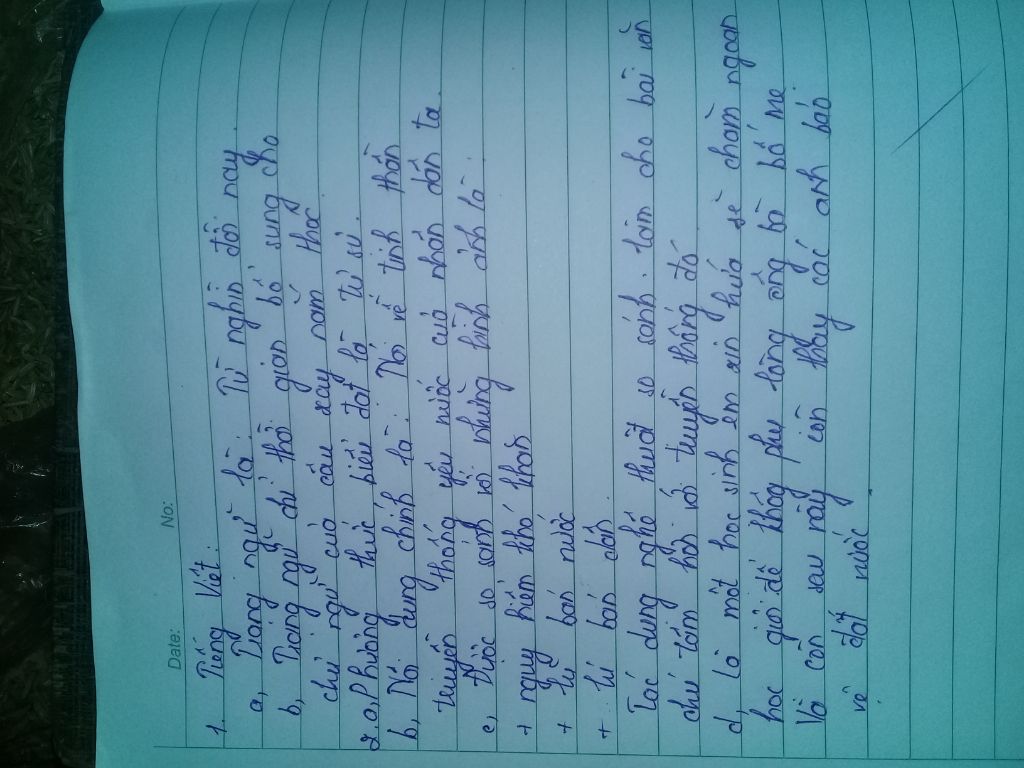 Date: No:
1. Tiếng Việt:
a, Trạng ngữ là: Từ nghìn đời nay
b, Trạng ngữ chỉ thời gian bổ sung cho
chủ ngữ của câu xảy năm thọc
2. a, Phương thức biểu đạt là tự sự.
b, Nội dung chính là: Nói về tinh thần
truyền thống yêu nước của nhân dân ta.
c, Được so sánh với những hình ảnh là:
+ nguy hiểm khó khăn
+ lũ bán nước
+ lũ bán dân
Tác dụng nghệ thuật so sánh. làm cho bài văn
chú tâm hơn với truyền thống đó
d, Là một học sinh em xin hứa sẽ chăm ngoan
học giỏi để không phụ lòng ông bà bố mẹ.
Và còn sau này còn thay các anh bảo
vệ đất nước